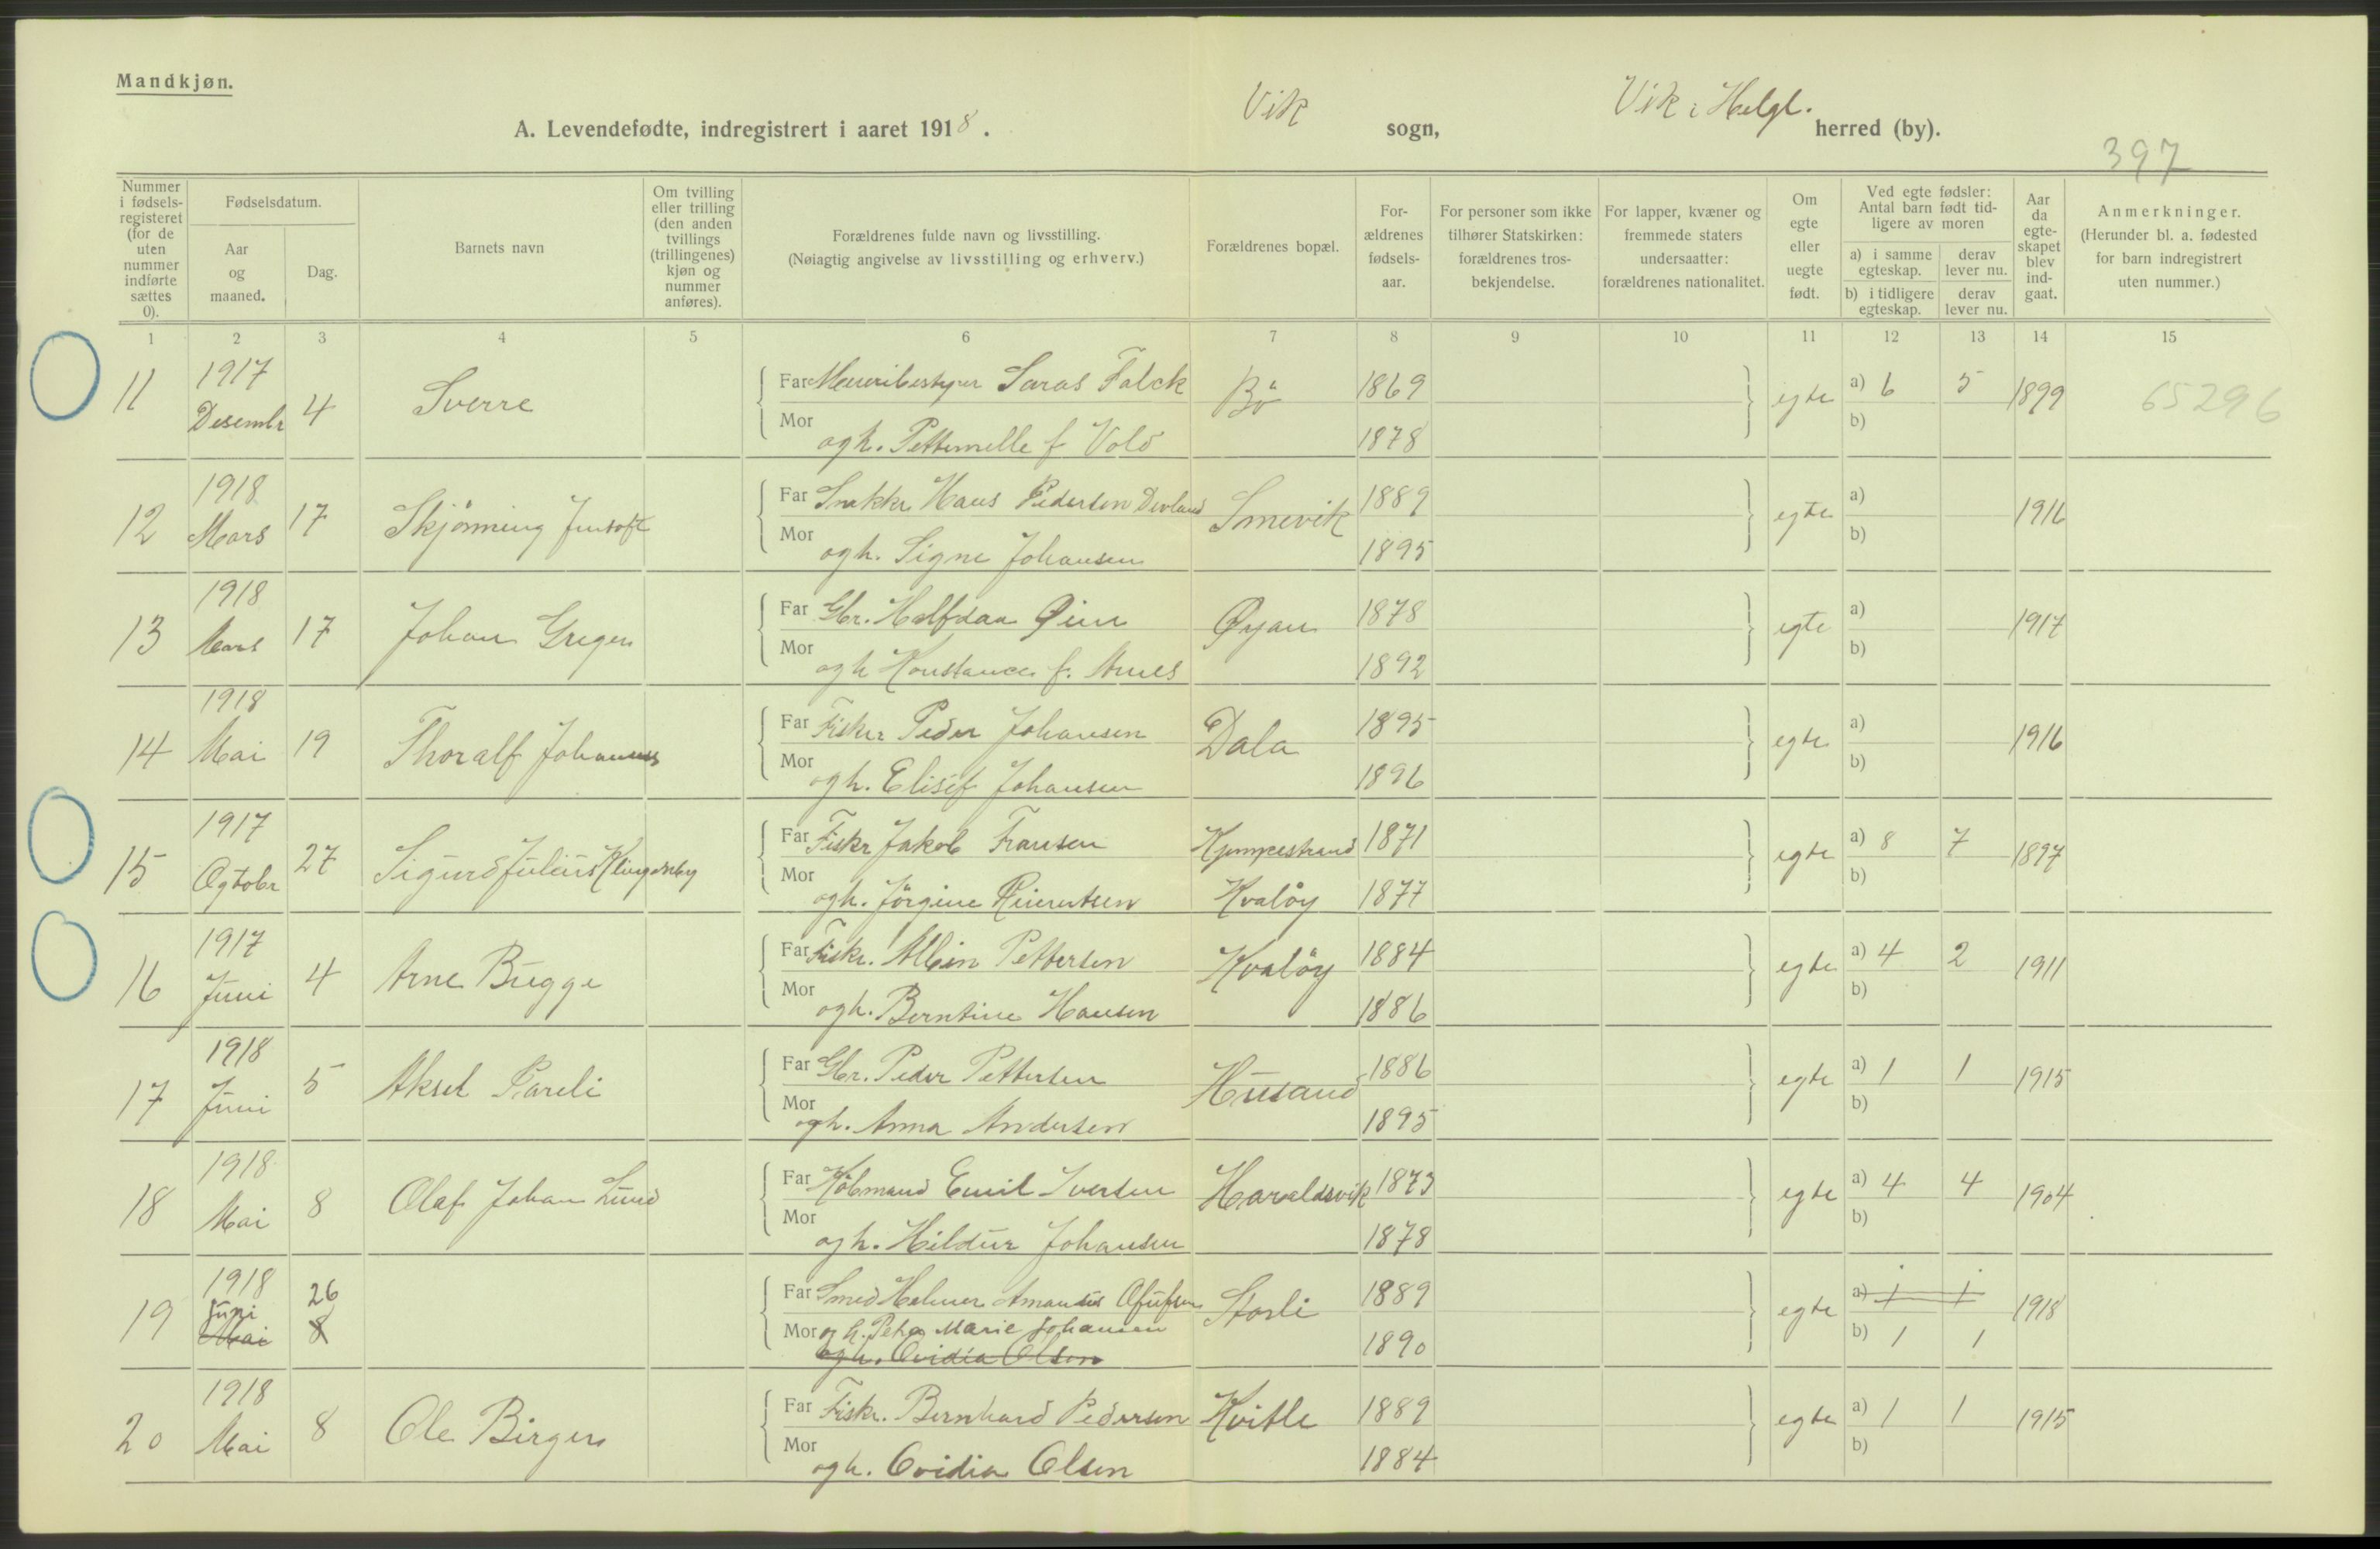 Mandkjøn.
A. Levendefødte, indregistrert i aaret 1918.
Vik sogn,
Vik i Helgl. herred (by).
397
Nummer i fødsels-registeret (for de uten nummer indførte sættes 0).
Fødselsdatum.
Aar og maaned.
Dag.
Barnets navn
Om tvilling eller trilling (den anden tvillings (trillingenes) kjøn og nummer anføres).
Forældrenes fulde navn og livsstilling.
(Nøiagtig angivelse av livsstilling og erhverv.)
Forældrenes bopæl.
For-ældrenes fødsels-aar.
For personer som ikke tilhører Statskirken: forældrenes tros-bekjendelse.
For lapper, kvæner og fremmede staters undersaatter: forældrenes nationalitet.
Om egte eller uegte født.
Ved egte fødsler: Antal barn født tid-ligere av moren
a) i samme egteskap.
derav lever nu.
b) i tidligere egteskap.
derav lever nu.
Aar da egte-skapet blev ind-gaat.
Anmerkninger.
(Herunder bl. a. fødested for barn indregistrert uten nummer.)
1 2 3 4 5 6 7 8 9 10 11 12 13 14 15
11 1917 Desembr 4 Sverre
Far Saras Falck Bö 1869 egte a) 6 5 1899 65296
Mor og h. f. Vold 1878 b)
12 1918 Mars 17 Skjönning
Far Hans Pedersen 1889 egte a) 1916
Mor og h. Signe Johansen 1895 b)
13 1918 Mars 17 Johan Gregers
Far Gbr. Halfdan Øian 1878 egte a) 1917
Mor og h. Konstance f. 1892 b)
14 1918 Mai 19 Thoralf Johannes
Far Fisker Peder Johansen Dala 1895 egte a) 1916
Mor og h. Elisef Johansen 1896 b)
15 1917 Ogtobr 27 Sigurd Julius
Far Fiskr Jakob Fransen 1871 egte a) 8 7 1897
Mor og h. Jörgine Kvalöy 1877 b)
16 1917 Juni 4 Arne Bugge
Far Fiskr. Albin Pettersen Kvalöy 1884 egte a) 4 2 1911
Mor og h. Berntine Hansen 1886 b)
17 1918 Juni 5 Aksel Pareli
Far Gbr. Peder Pettersen Husand 1886 egte a) 1 1 1915
Mor og h. Anna Andersen 1895 b)
18 1918 Mai 8 Olaf Johan Lund
Far Emil Iversen Haraldsvik 1873 egte a) 4 4 1904
Mor og h. Hildur Johansen 1878 b)
19 1918 Juni 26
Mai 8
Far Smed Amandus Olufsen Storli 1889 egte a) 1 1 1918
Mor og h. Petra Marie Johansen 1890 b) 1 1
og h. Ovidia Olsen
20 1918 Mai 8 Ole Birger
Far Fiskr. Bernhard Pedersen 1889 egte a) 1 1 1915
Mor og h. Ovidia Olsen 1884 b)